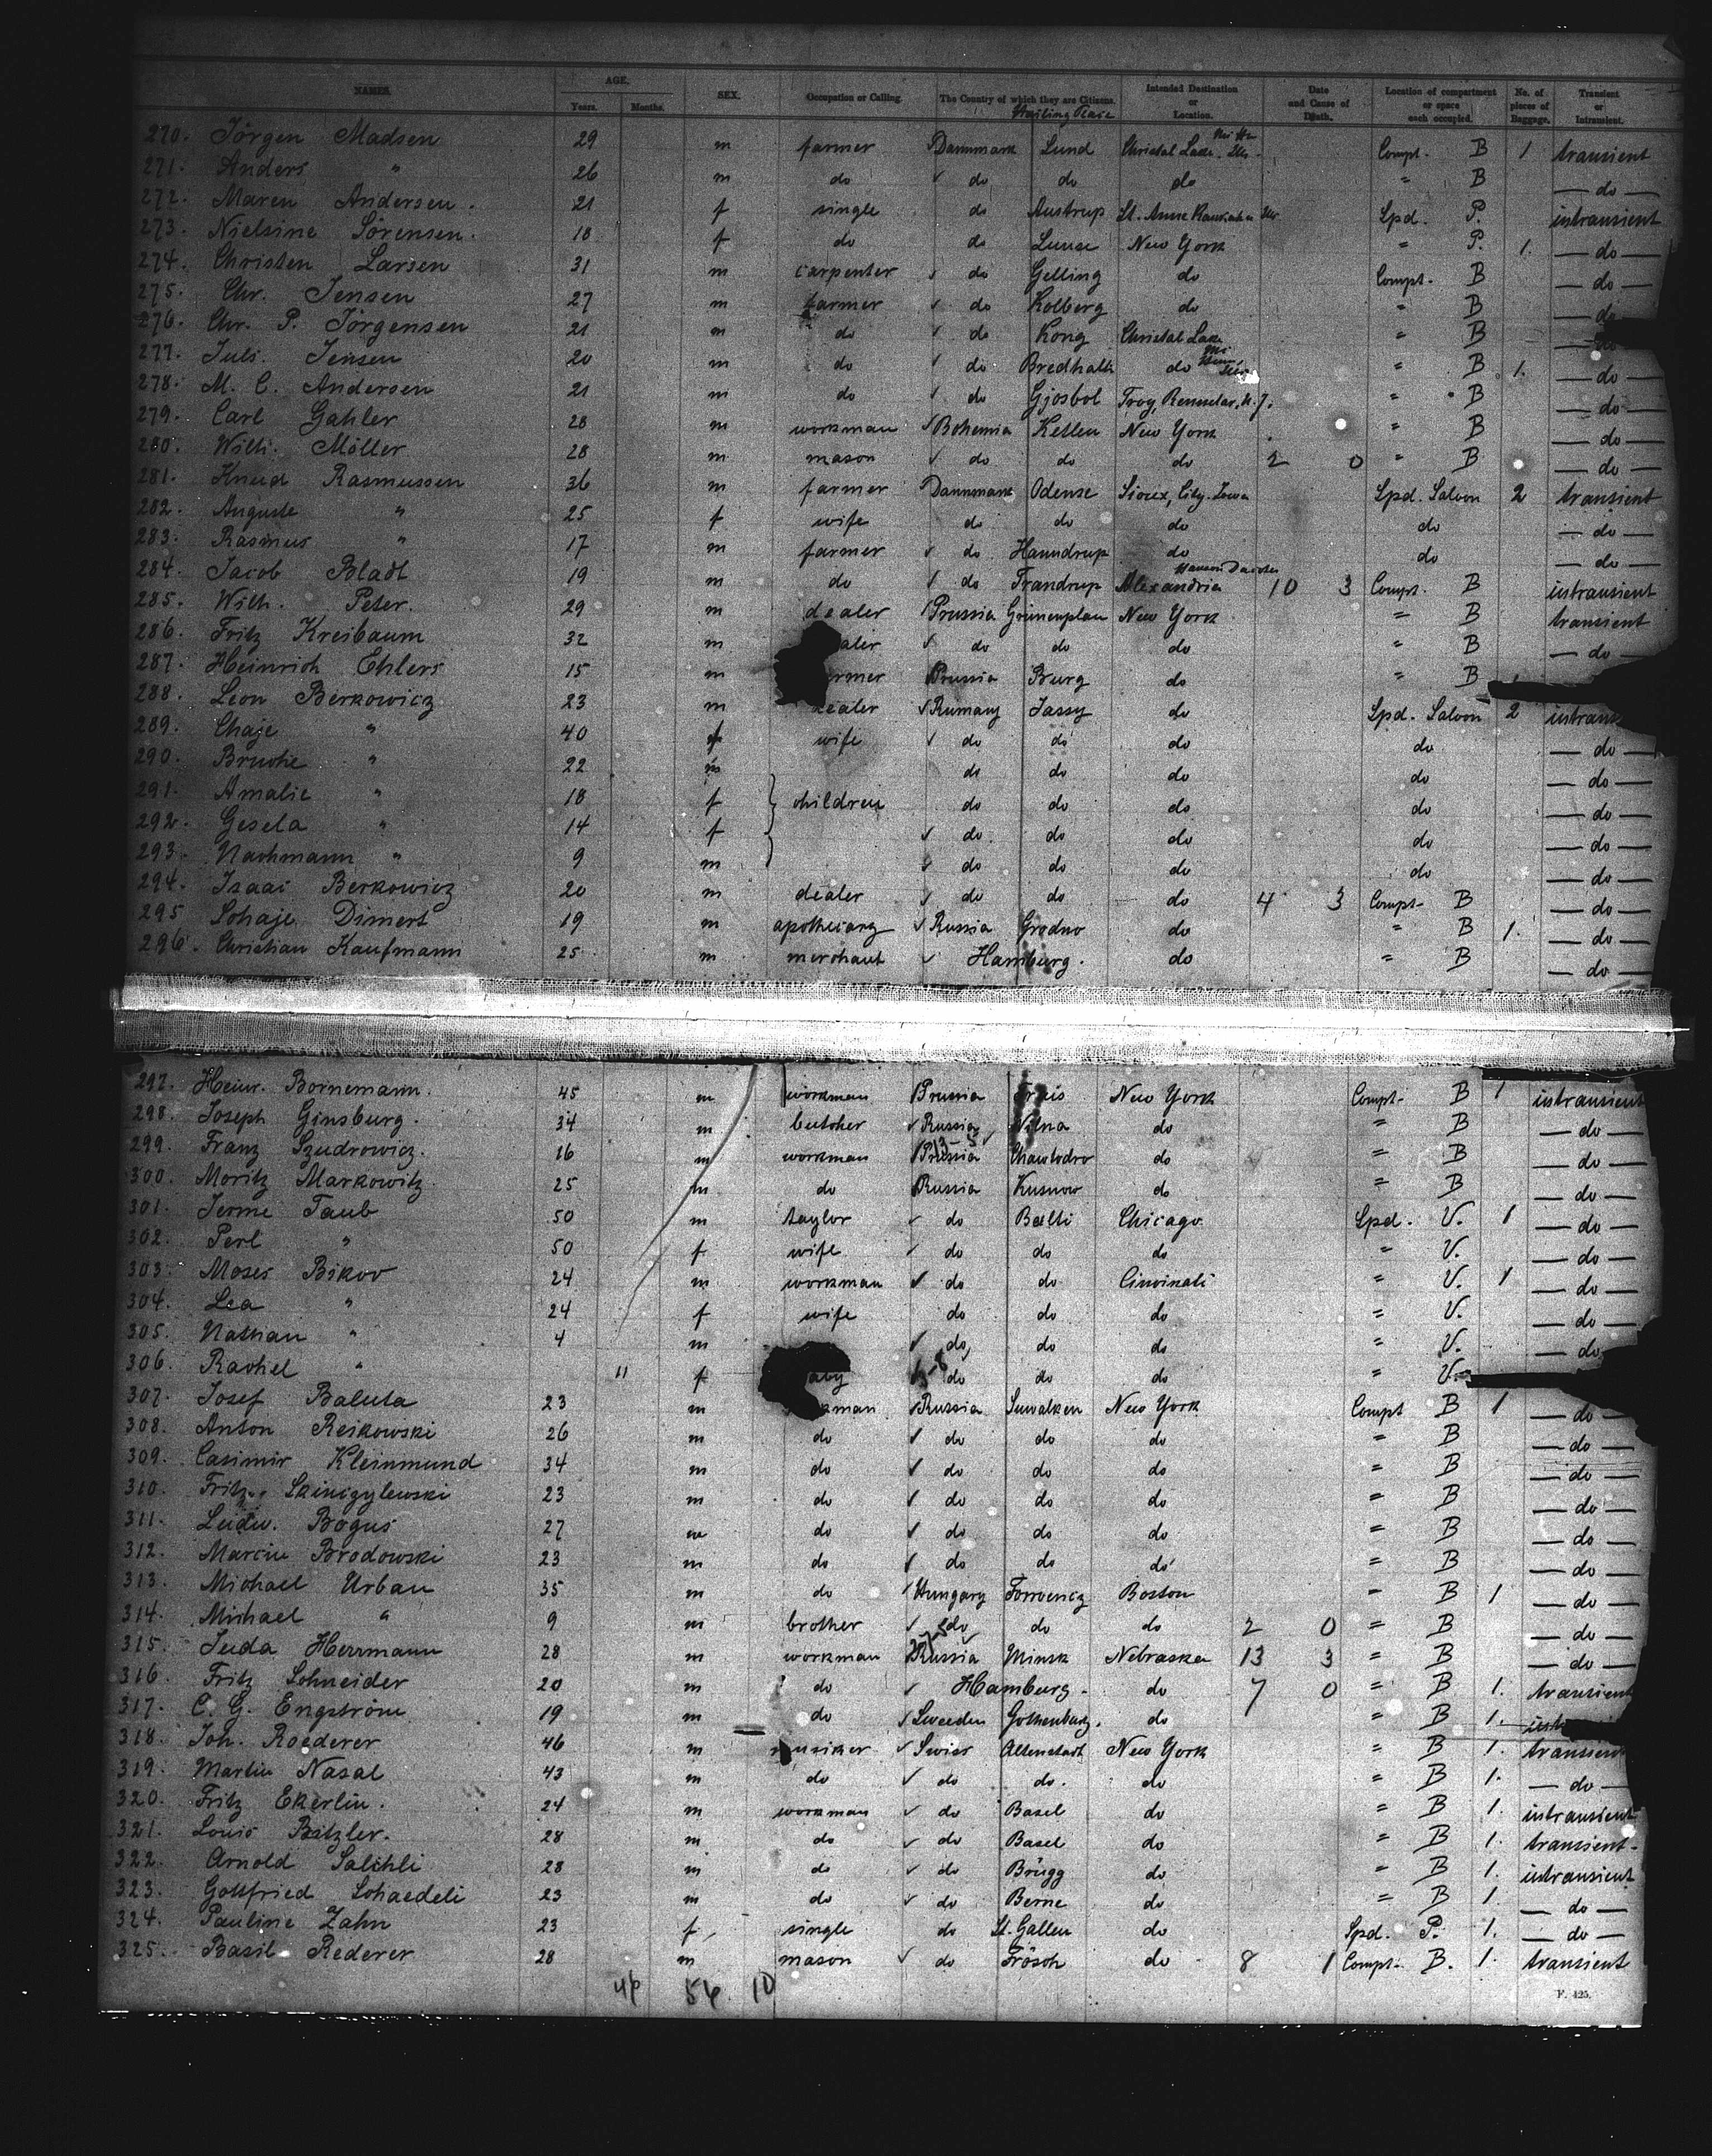 NAMES. AGE. Years. Months. SEX. Occupation or Calling. The Country of which they are Citizens. Intended Destination or Location. Date and Cause of Death. Location of compartment or space each occupied. No. of pieces of Baggage. Transient or Intransient.
270. Jörgen Madsen 29 m farmer Dannmark Lund Christal Lake Compt. B 1 transient
271. Anders " 26 m do do do do " B do
272. Maren Andersen. 21 f single do Austrup St. Anne Spd. P. intransient
273. Nielsine Sörensen. 18 f do do Lunse New York " P. 1. do
274. Christen Larsen 31 m carpenter do Gelling do Compt. B do
275. Chr. Jensen 27 m farmer do Kolberg do " B do
276. Chr. P. Jörgensen 21 m do do Kong Christal Lake " B do
277. Juli. Jensen 20 m do do Bredhalle do " B 1. do
278. M. C. Andersen 21 m do do Gjosbol Troy, Rensselar, N.J. " B do
279. Carl Gahler 28 m workman Bohemia Ketten New York " B do
280. Wilh. Möller 28 m mason do do do 2 0 " B do
281. Knud Rasmussen 36 m farmer Dannmark Odense Sioux, City. Iowa Spd. Saloon 2 transient
282. Auguste " 25 f wife do do do do do
283. Rasmus " 17 m farmer do Haundrup do do do
284. Jacob Bladt 19 m do do Trandrup Alexandria 10 3 Compt. B intransient
285. Wilh. Peter. 29 m dealer Prussia Grünenplan New York " B transient
286. Fritz Kreibaum 32 m aler do do do " B do
287. Heinrich Ehlers 15 m rmer Prussia Burg do " B
288. Leon Berkowicz 23 m ealer Rumany Jassy do Spd. Saloon 2 intrans
289. Chaje " 40 f wife do do do do do
290. Bruche " 22 m do do do do do
291. Amalie " 18 f children do do do do do
292. Gesela " 14 f do do do do do
293. Nachmann " 9 m do do do do do
294. Isaac Berkowicz 20 m dealer do do do 4 3 Compt. B do
295 Schaje Dimert 19 m apothecary Russia Grodno do " B 1. do
296. Christian Kaufmann 25 m merchant Hamburg. do " B do
297. Heinr. Bornemann. 45 m workman Prussia New York Compt. B 1 intransient
298. Joseph Ginsburg. 34 m butcher Russia Wilna do " B do
299. Franz Szudrowicz. 16 m workman Prussia Chawlodro do " B do
300. Moritz Markowitz 25 m do Russia Kusnow do " B do
301. Jerme Taub 50 m taylor do Balti Chicago Spd. V. 1 do
302. Perl " 50 f wife do do do " V. do
303. Moses Bikov 24 m workman do do Cincinati " V. 1 do
304. Lea " 24 f wife do do do " V. do
305. Nathan " 4 m do do do " V. do
306. Rachel " 11 f aby do do do " V.
307. Josef Baluta 23 m kman Russia Suwalken New York Compt B 1 do
308. Anton Reikowski 26 m do do do do " B do
309. Casimir Kleinmund 34 m do do do do " B do
310. Fritz. Skinizylewski 23 m do do do do " B do
311. Ludw. Bogus 27 m do do do do " B do
312. Marcin Brodowski 23 m do do do do " B do
313. Michael Urban 35 m do Hungary Torroencz Boston " B 1 do
314. Michael " 9 m brother do do do 2 0 " B do
315. Juda Herrmann 28 m workman Russia Minsk Nebraska 13 3 " B do
316. Fritz Schneider 20 m do Hamburg. do 7 0 " B 1. transient
317. C. G. Engström 19 m do Sweeden Gothenburg. do " B 1.
318. Joh. Roederer 46 m musiker Swiss Altenstadt New York " B 1. transient
319. Martin Nasal 43 m do do do. do " B 1. do
320. Fritz Ekerlin. 24 m workman do Basel do " B 1. intransient
321. Louis Bitzler. 28 m do do Basel do " B 1. transient.
322. Arnold Salchli 28 m do do Brügg do " B 1. intransient
323. Gottfried Schaedeli 23 m do do Berne do " B 1. do
324. Pauline Zahn 23 f single do St. Gallen do Spd. P. 1. do
325. Basil Rederer 28 m mason do Frösch do 8 1 Compt. B. 1. transient
46 56 10
F. 425.